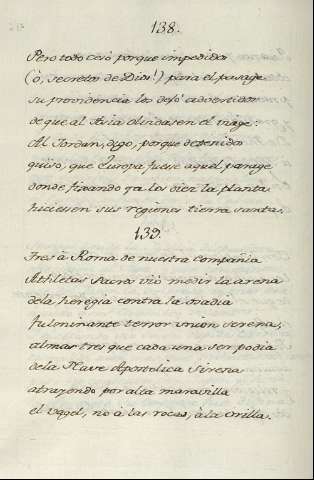 138.
Pero todo cesó porque impedidos
(ò, secretos de Dios!) para el pasage
su providencia los dejó advertidos
de que al Asia olvidasen el viage:
Al Jordan, digo, porque detenidos
quiso, que Europa fuese aquel parage
donde fixando ya los diez la planta
hiciesen sus regiones tierra santa.
139.
Tres à Roma de nuestra Compañia
Athletas Sacros vió medir la arena
dela heregia contra la osadia
fulminante terror union serena;
almas tres que cada una ser podia
dela Nave Apostolica Sirena
atrayendo por alta maravilla
el vagel, no à las rocas, à la orilla.